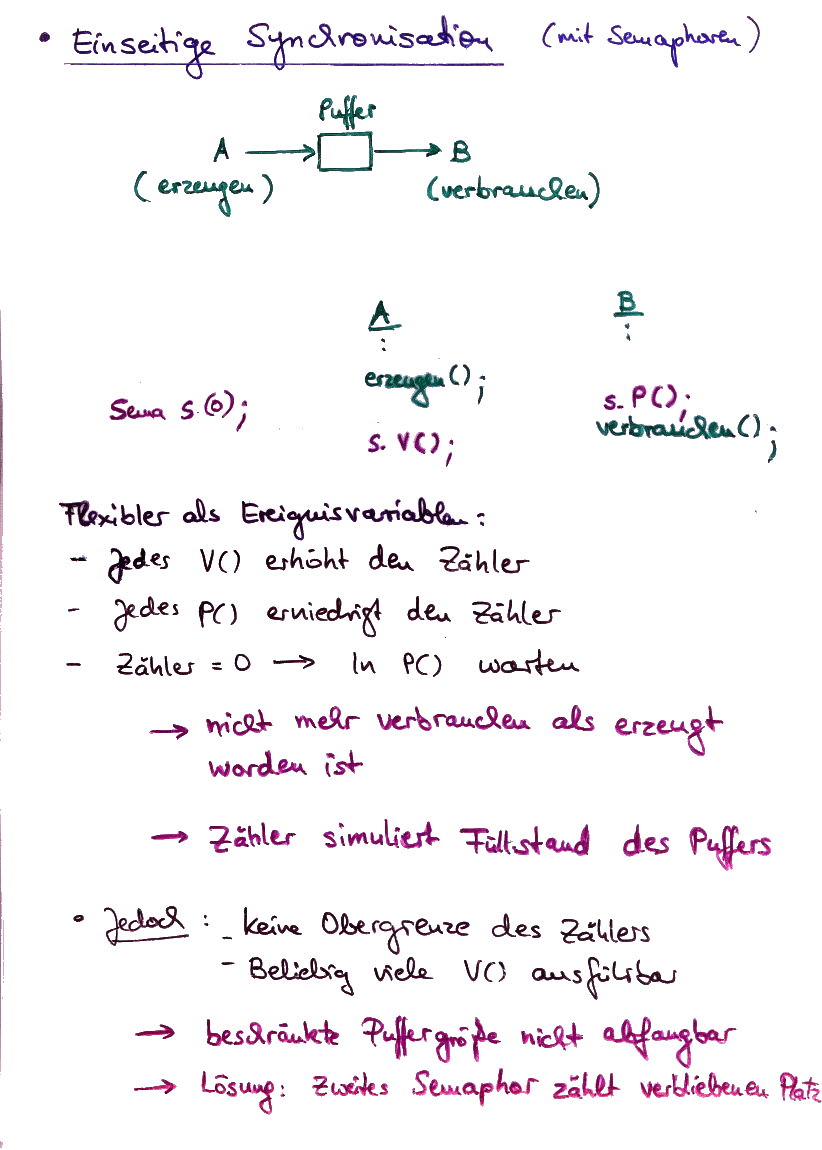 • Einseitige Synchronisation (mit Semaphoren)
Puffer
A → → B
(erzeugen) (verbrauchen)
A B
: :
erzeugen();
Sema s.(0); s. P();
verbrauchen();
s. V();
Flexibler als Ereignisvariablen:
- Jedes V() erhöht den Zähler
- Jedes P() erniedrigt den Zähler
- Zähler = 0 → In P() warten
→ nicht mehr verbrauchen als erzeugt
worden ist
→ Zähler simuliert Füllstand des Puffers
• Jedoch: - keine Obergrenze des Zählers
- Beliebig viele V() ausführbar
→ beschränkte Puffergröße nicht abfangbar
→ Lösung: Zweites Semaphor zählt verbliebenen Platz